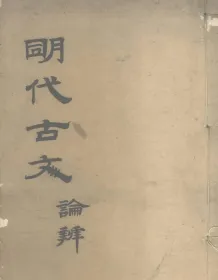 明代古文
論辨